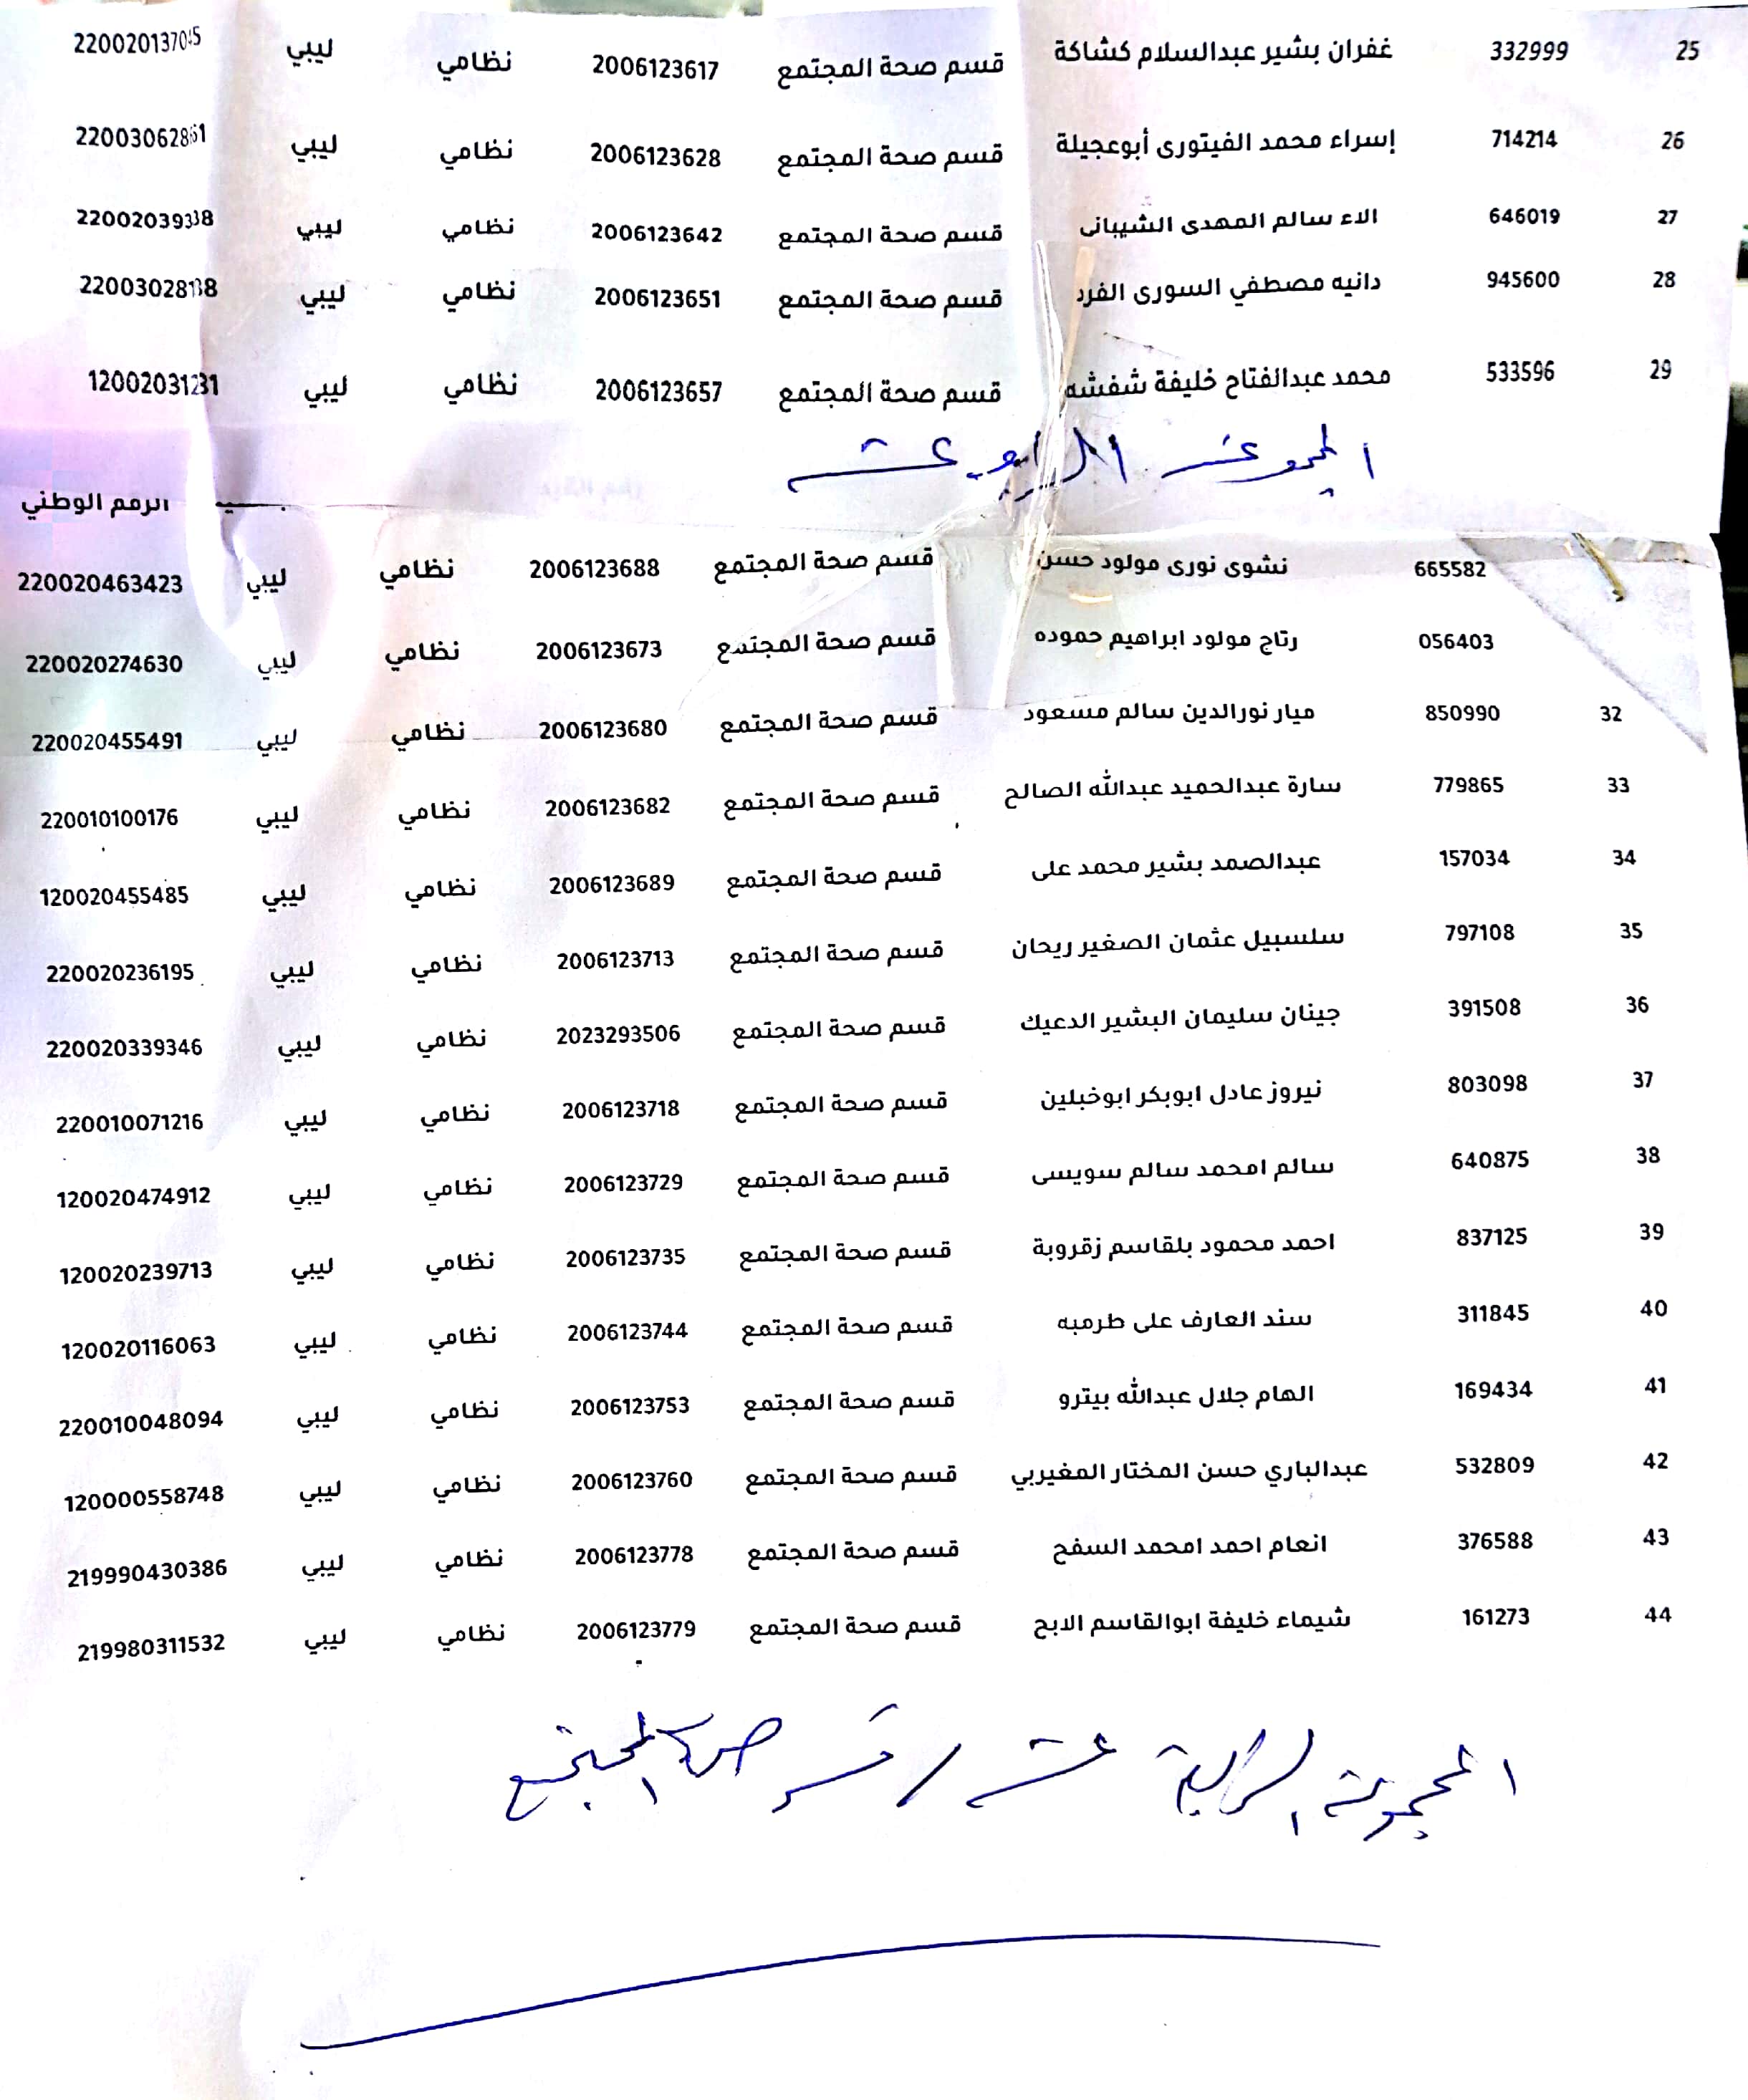 25 332999 غفران بشير عبدالسلام كشاكة قسم صحة المجتمع 2006123617 نظامي ليبي
26 714214 إسراء محمد الفيتورى أبوعجيلة قسم صحة المجتمع 2006123628 نظامي ليبي
27 646019 الاء سالم المهدى الشيبانى قسم صحة المجتمع 2006123642 نظامي ليبي
28 945600 دانيه مصطفي السورى الفرد قسم صحة المجتمع 2006123651 نظامي ليبي
29 533596 محمد عبدالفتاح خليفة شفشه قسم صحة المجتمع 2006123657 نظامي ليبي
المجموعة الرابعة عشر
الرقم الوطني
665582 نشوى نورى مولود حسن قسم صحة المجتمع 2006123688 نظامي ليبي 220020463423
056403 رتاج مولود ابراهيم حموده قسم صحة المجتمع 2006123673 نظامي ليبي 220020274630
32 850990 ميار نورالدين سالم مسعود قسم صحة المجتمع 2006123680 نظامي ليبي 220020455491
33 779865 سارة عبدالحميد عبدالله الصالح قسم صحة المجتمع 2006123682 نظامي ليبي 220010100176
34 157034 عبدالصمد بشير محمد على قسم صحة المجتمع 2006123689 نظامي ليبي 120020455485
35 797108 سلسبيل عثمان الصغير ريحان قسم صحة المجتمع 2006123713 نظامي ليبي 220020236195
36 391508 جينان سليمان البشير الدعيك قسم صحة المجتمع 2023293506 نظامي ليبي 220020339346
37 803098 نيروز عادل ابوبكر ابوخبلين قسم صحة المجتمع 2006123718 نظامي ليبي 220010071216
38 640875 سالم امحمد سالم سويسى قسم صحة المجتمع 2006123729 نظامي ليبي 120020474912
39 837125 احمد محمود بلقاسم زقروبة قسم صحة المجتمع 2006123735 نظامي ليبي 120020239713
40 311845 سند العارف على طرمبه قسم صحة المجتمع 2006123744 نظامي ليبي 120020116063
41 169434 الهام جلال عبدالله بيترو قسم صحة المجتمع 2006123753 نظامي ليبي 220010048094
42 532809 عبدالباري حسن المختار المغيربي قسم صحة المجتمع 2006123760 نظامي ليبي 120000558748
43 376588 انعام احمد امحمد السفح قسم صحة المجتمع 2006123778 نظامي ليبي 219990430386
44 161273 شيماء خليفة ابوالقاسم الابح قسم صحة المجتمع 2006123779 نظامي ليبي 219980311532
المجموعة الرابعة عشر / قسم صحة المجتمع